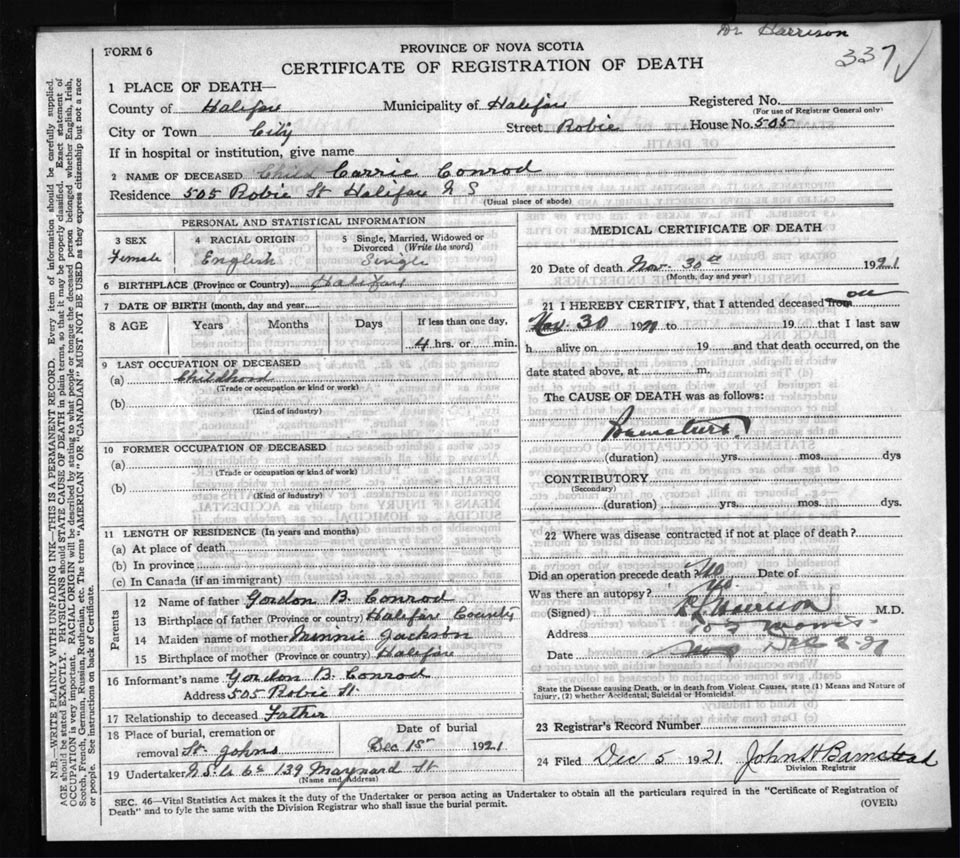 Dr Harrison
337
FORM 6
PROVINCE OF NOVA SCOTIA
CERTIFICATE OF REGISTRATION OF DEATH
1 PLACE OF DEATH—
County of Halifax Municipality of Halifax Registered No.
(For use of Registrar General only)
City or Town City Street Robie House No. 505
If in hospital or institution, give name
2 NAME OF DECEASED Child Carrie Conrod
Residence 505 Robie St Halifax N S
(Usual place of abode)
PERSONAL AND STATISTICAL INFORMATION
3 SEX 4 RACIAL ORIGIN 5 Single, Married, Widowed or Divorced (Write the word)
Female English Single
6 BIRTHPLACE (Province or Country) Halifax
7 DATE OF BIRTH (month, day and year)
8 AGE Years Months Days If less than one day,
4 hrs. or min.
9 LAST OCCUPATION OF DECEASED
(a) Childhood
(Trade or occupation or kind or work)
(b)
(Kind of industry)
10 FORMER OCCUPATION OF DECEASED
(a)
(Trade or occupation or kind of work)
(b)
(Kind of industry)
11 LENGTH OF RESIDENCE (In years and months)
(a) At place of death
(b) In province
(c) In Canada (if an immigrant)
Parents
12 Name of father Gordon B. Conrod
13 Birthplace of father (Province or country) Halifax County
14 Maiden name of mother Minnie Jackson
15 Birthplace of mother (Province or country) Halifax
16 Informant's name Gordon B. Conrod
Address 505 Robie St.
17 Relationship to deceased Father
18 Place of burial, cremation or Date of burial
removal St. Johns Dec 1st 1921
19 Undertaker N.S. U Co 139 Maynard St
(Name and address)
MEDICAL CERTIFICATE OF DEATH
20 Date of death Nov. 30th 1921
(Month, day and year)
21 I HEREBY CERTIFY, that I attended deceased from on
Nov. 30 1921 to 19 that I last saw
h alive on 19 and that death occurred, on the
date stated above, at m.
The CAUSE OF DEATH was as follows:
Premature
(duration) yrs. mos. dys
CONTRIBUTORY
(Secondary)
(duration) yrs. mos. dys.
22 Where was disease contracted if not at place of death?
Did an operation precede death? No Date of
Was there an autopsy? No
(Signed) Harrison M.D.
Address Morris
Date Dec 2-21
State the Disease causing Death, or in death from Violent Causes, state (1) Means and Nature of
Injury, (2) whether Accidental, Suicidal or Homicidal.
23 Registrar's Record Number
24 Filed Dec 5 1921 John H Barnstead
Division Registrar
SEC. 46—Vital Statistics Act makes it the duty of the Undertaker or person acting as Undertaker to obtain all the particulars required in the "Certificate of Registration of
Death" and to fyle the same with the Division Registrar who shall issue the burial permit.
(OVER)
N.B.—WRITE PLAINLY WITH UNFADING INK—THIS IS A PERMANENT RECORD. Every item of information should be carefully supplied.
AGE should be stated EXACTLY. PHYSICIANS should STATE CAUSE OF DEATH in plain terms, so that it may be properly classified. Exact statement of
OCCUPATION is very important. RACIAL ORIGIN will be described by stating to what people or tongue the deceased person belonged whether English, Irish,
Scotch, French, German, Russian, Ruthenian, etc. The terms "AMERICAN" OR "CANADIAN" MUST NOT BE USED as they express citizenship but not a race
or people. See instructions on back of Certificate.